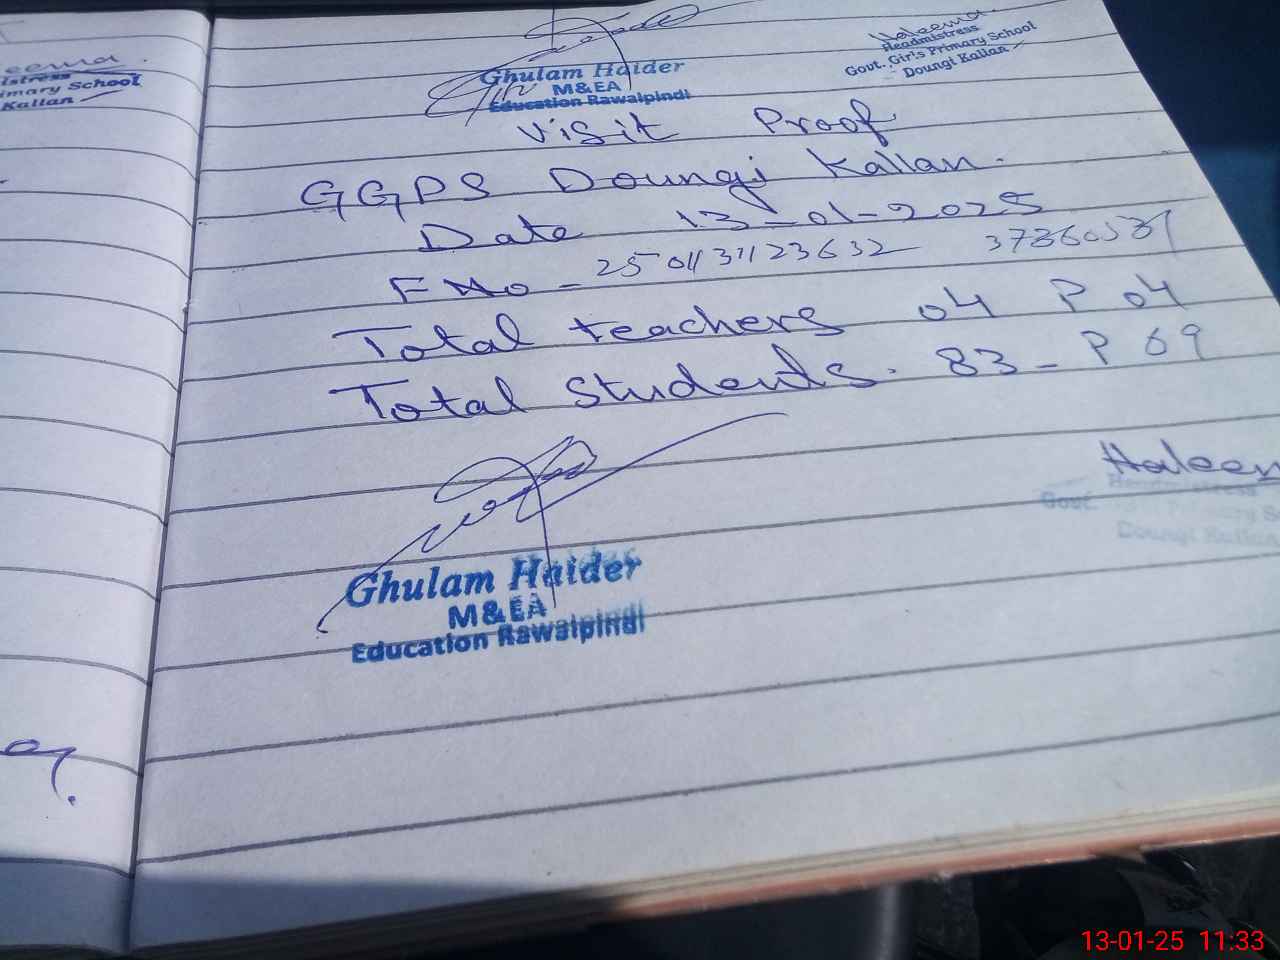 Ghulam Haider
M&EA
Education Rawalpindi
Haleema
Headmistress
Govt. Girls Primary School
Doungi Kallan
Visit Proof
GGPS Doungi Kallan.
Date 13-01-2025
F No - 2501131123632 37360531
Total teachers 04 P 04
Total Students. 83 - P 69
Haleem
Headmistress
Govt. Primary S
Doungi Kallan
Ghulam Haider
M&EA
Education Rawalpindi
eema.
istress
imary School
Kallan
13-01-25 11:33